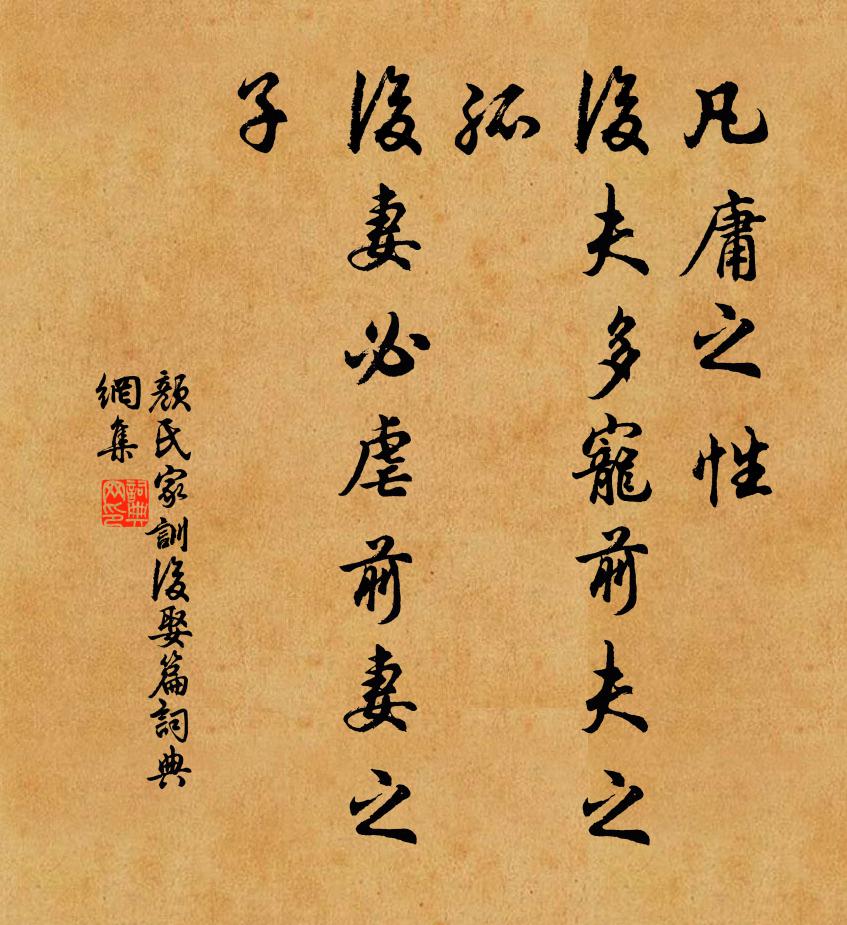 凡庸之性
後夫多寵前夫之
孤
後妻必虐前妻之
子
顏氏家訓後娶篇詞典
網集
詞典
网印